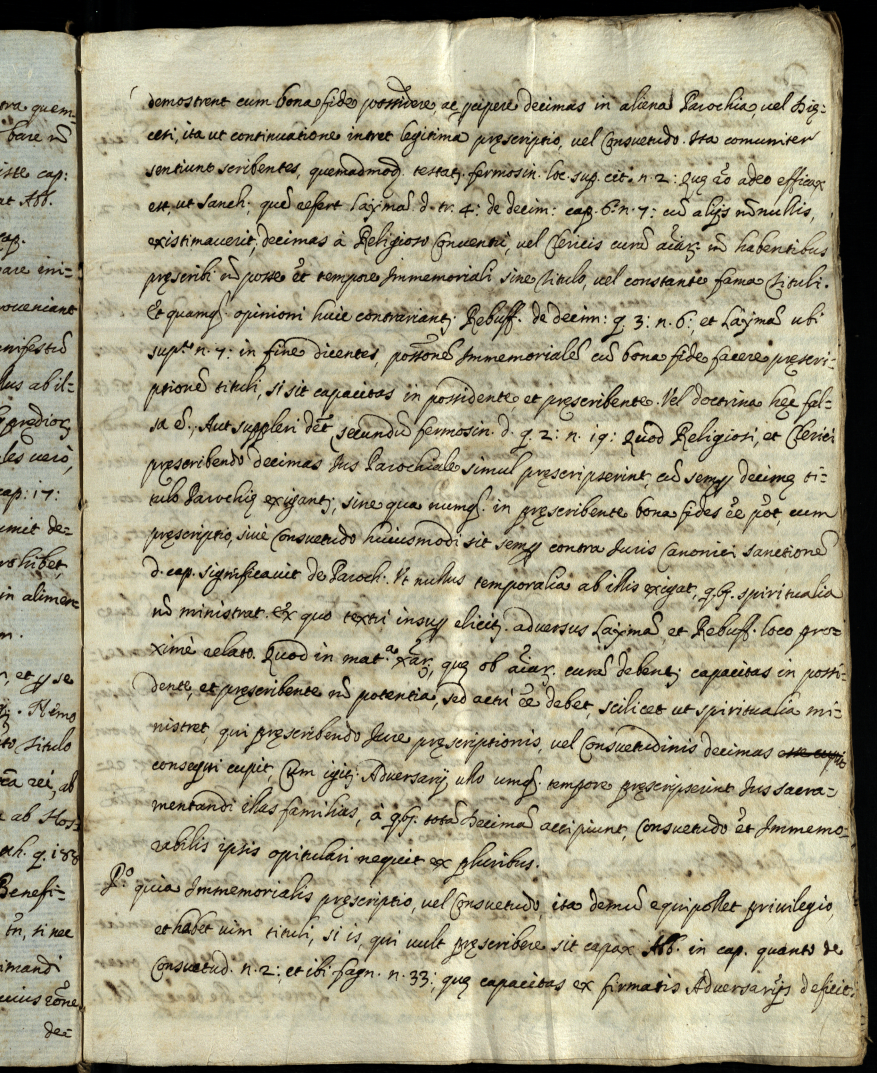 tra quem-
bare nō
iste cap:
at Abb.
cap.
are iri-
oveniant
anifestū
lus ab il-
prediorʒ
les verò,
cap: 17:
umit de-
rohibet,
in alimen-
n.
r, et ꝑ se
Nemo
to titulo
ea rei, ab
a ab Hos-
ah. q. 188
Benefi-
tñ, si nec
imandi
cuius rōne
de-
demostrent cum bona fide possidere, ac ꝑcipere decimas in aliena Parochia, vel Diȩ-
cesi, ita ut continuatione intret legitima prȩscriptio, vel Consuetudo. Ita comuniter
sentiunt scribentes, quemadmod. testatʒ fermosin. loc. sup. cit. n. 2: quȩ rō adeo efficax
est, ut Sanch: quē refert Layma d. tr. 4: de decim: cap. 6. n. 7: cū alijs nōnullis,
existimaverit, decimas à Religioso Conventu, vel Clericis curā aiarʒ nō habentibus
prȩscribi nō posse et tempore Immemoriali sine titulo, vel constante fama tituli.
Et quamqʒ opinioni huic contrariantʒ Rebuff. de decim: q. 3: n. 6: et Laymā ubi
supra n. 7: in fine dicentes, possōnē Immemorialē cū bona fide facere prȩscri-
ptionē tituli, si sit capacitas in possidente, et prȩscribente. Vel doctrina hȩc fal-
sa ē, Aut suppleri dēt, secundū fermosin. d. q. 2: n. 19: Quod Religiosi, et Clerici
prȩscribendo decimas Ius Parochiale simul prȩscripserint, cū semꝑ decimȩ ti-
tulo Parochiȩ exigantʒ, sine qua numqʒ in prȩscribente bona fides ēe pōt, cum
prȩscriptio, sive Consuetudo huiusmodi sit semꝑ contra Iuris Canonici sanctionē
d. cap. significavit de Paroch. Ut nullus temporalia ab illis exigat, qbʒ spiritualia
nō ministrat. Ex quo textu insuꝑ elicitʒ adversus Laymā, et Rebuff. loco pro-
ximè relato. Quod in mat.ᵃ Xarʒ, quȩ ob aiarʒ curā debentʒ capacitas in possi-
dente, et prȩscribente nō potentia, sed actu ēe debet, scilicet ut spiritualia mi-
nistret, qui prȩscribendo Iure prȩscriptionis, vel Consuetudinis decimas
consequi cupit, Cum igitʒ Adversarij ullo umqʒ tempore prȩscripserint Ius sacra-
mentandi illas familias, à qbʒ totā Decimā accipiunt, Consuetudo et Immemo-
rabilis ipsis opitulari nequit ex pluribus.
Pº quia Immemorialis prȩscriptio, vel Consuetudo, ita demū equipollet privilegio,
et habet vim tituli, si is, qui vult prȩscribere sit capax Abb. in cap. quanto de
Consuetud. n. 2: et ibi fagn. n. 33: quȩ capacitas ex firmatis Adversarijs deficit.